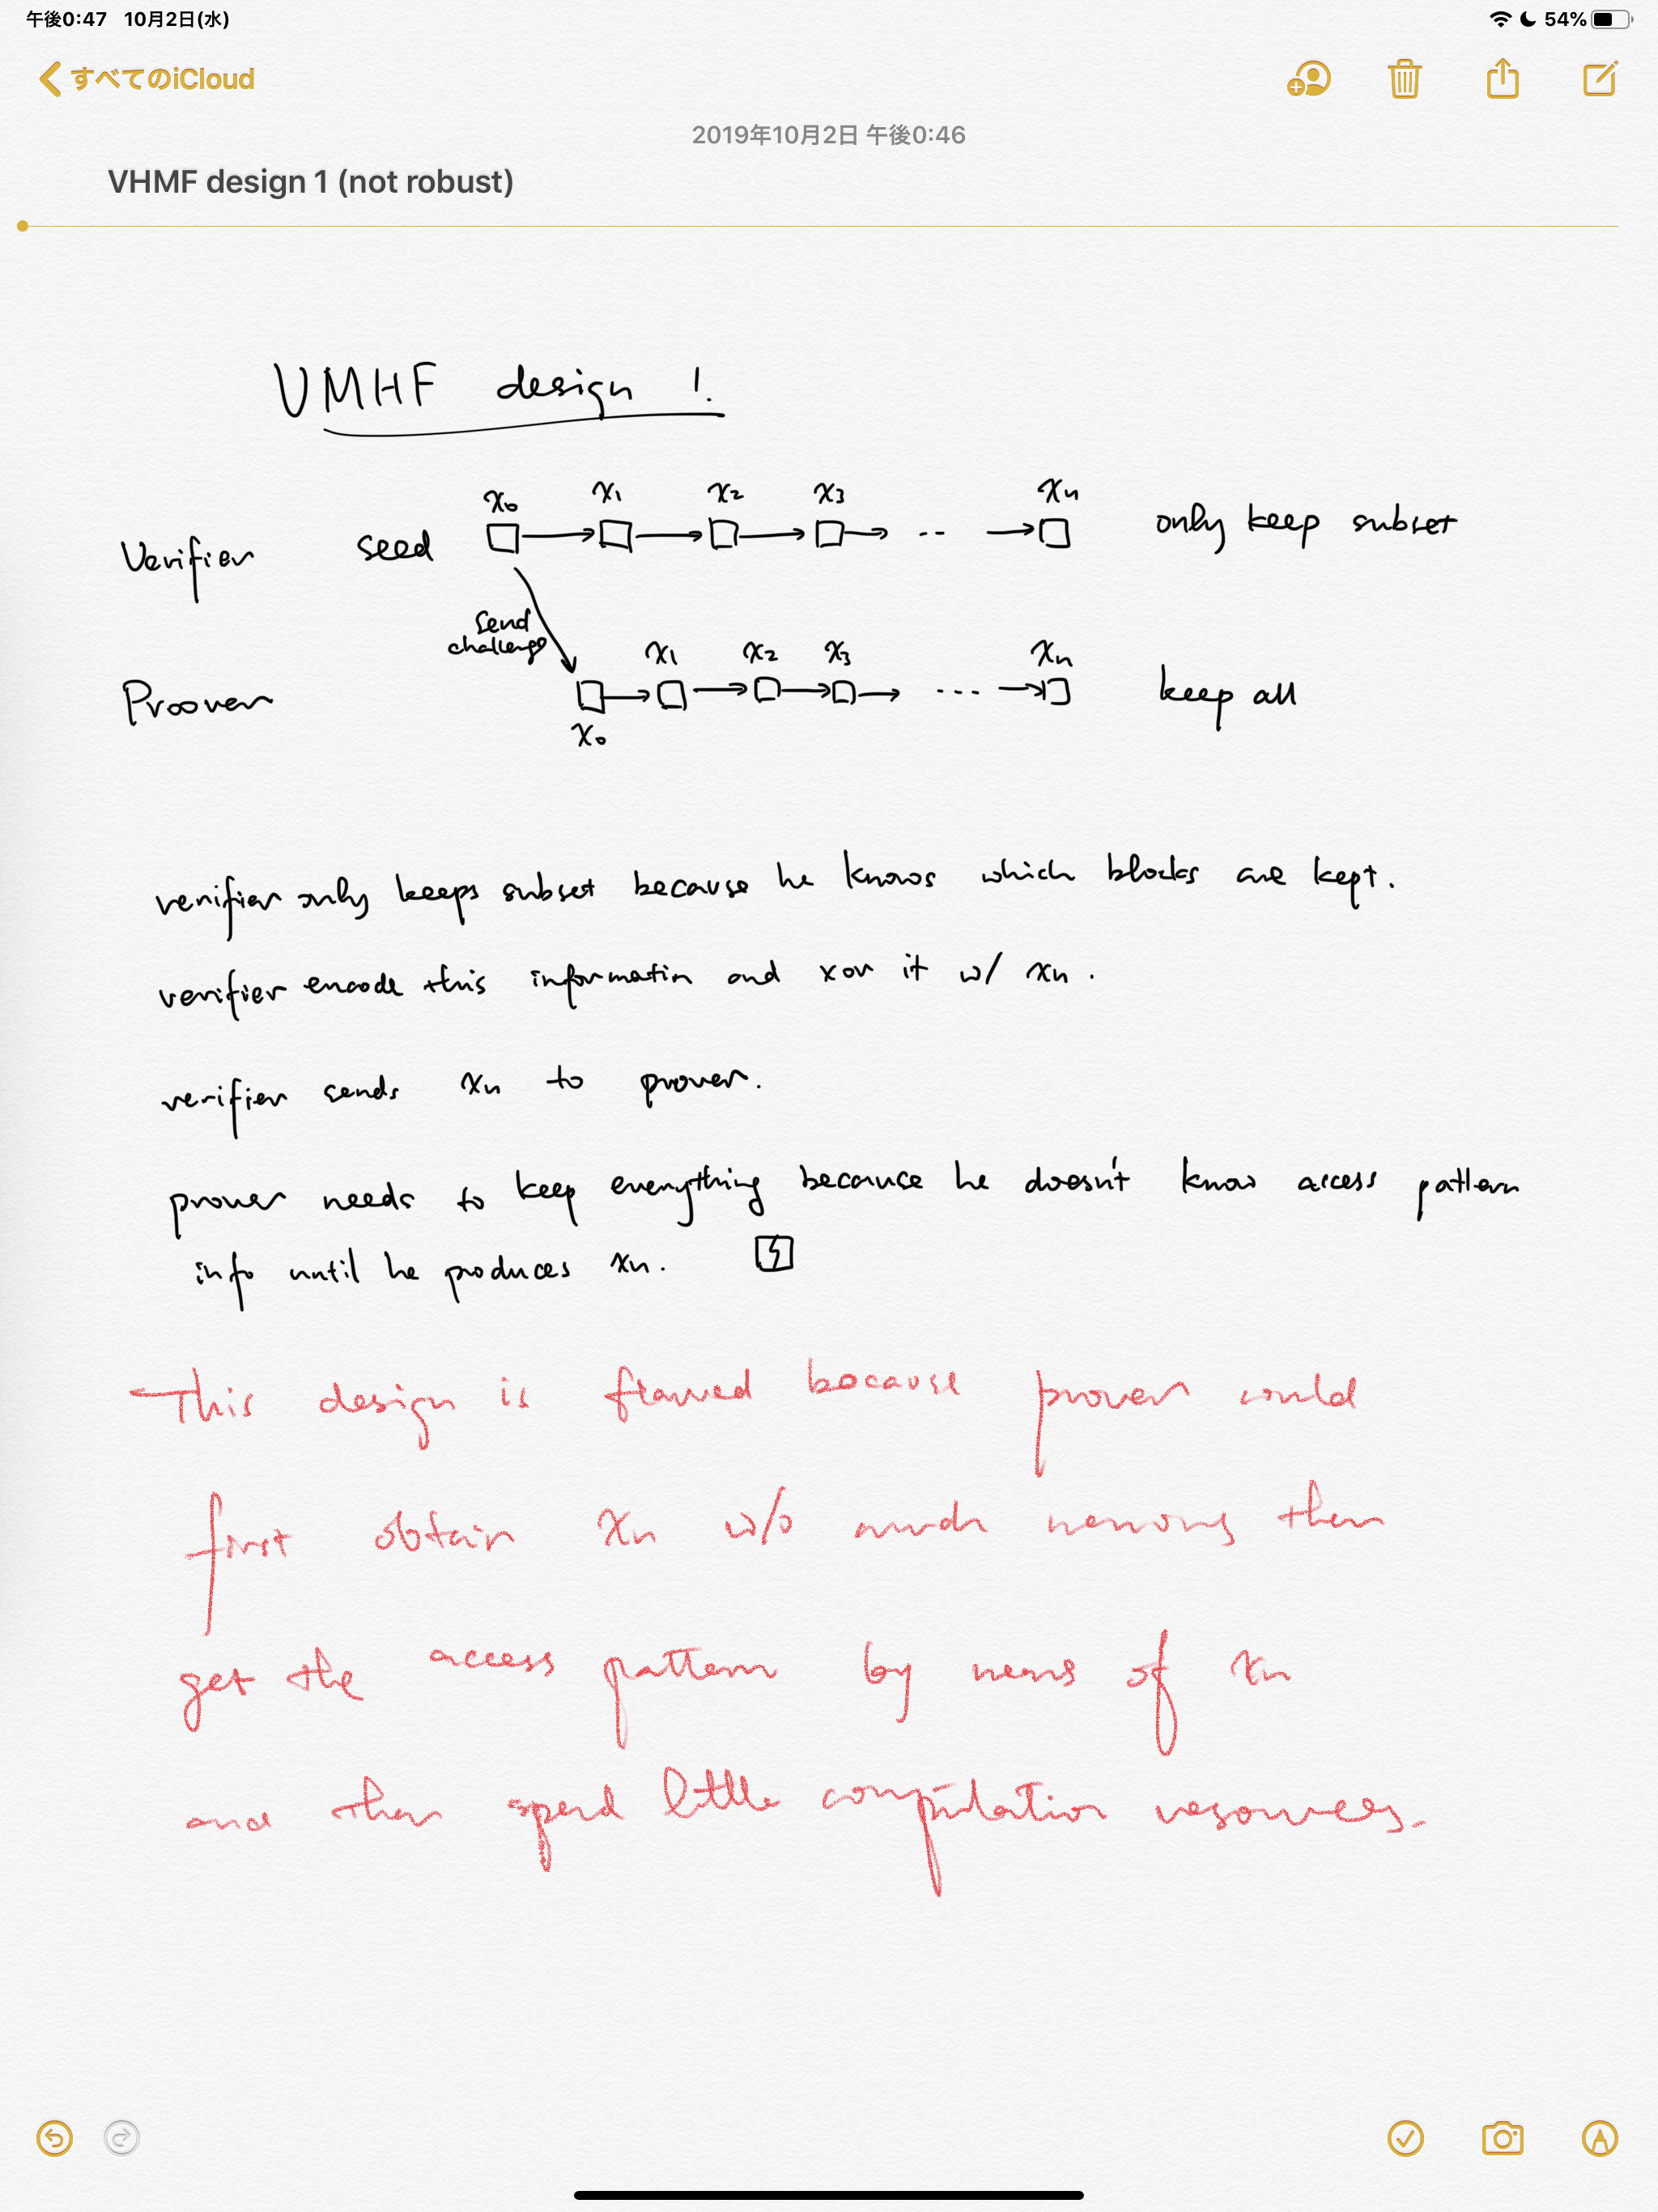 午後0:47 10月2日(水) 54%
すべてのiCloud
2019年10月2日 午後0:46
VHMF design 1 (not robust)
VMHF design 1.
x₀ x₁ x₂ x₃ xₙ
Verifier seed → → → → ·· → only keep subset
send
challenge
x₁ x₂ x₃ xₙ
Proover → → → → ... → keep all
x₀
verifier only keeps subset because he knows which blocks are kept.
verifier encode this informatin and xor it w/ xₙ.
verifier sends xₙ to prover.
prover needs to keep everything because he doesn't know access pattern
info until he produces xₙ.
This design is flawed because prover could
first obtain xₙ w/o much memory then
get the access pattern by means of xₙ
and then spend little computation resources.